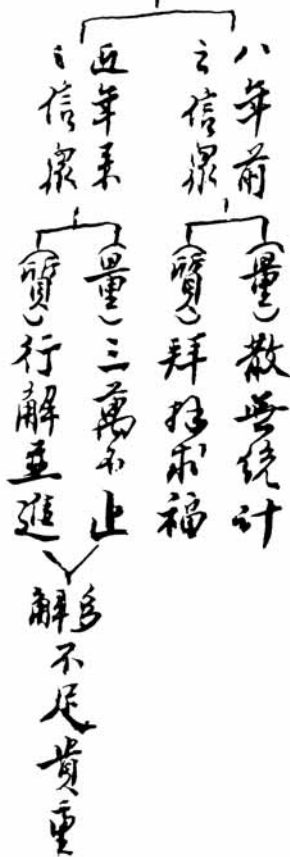 八年前
之信眾
(量)散無統計
(質)拜拜求福
近年來
之信眾
(量)三萬不止
(質)行解並進
解不足貴重